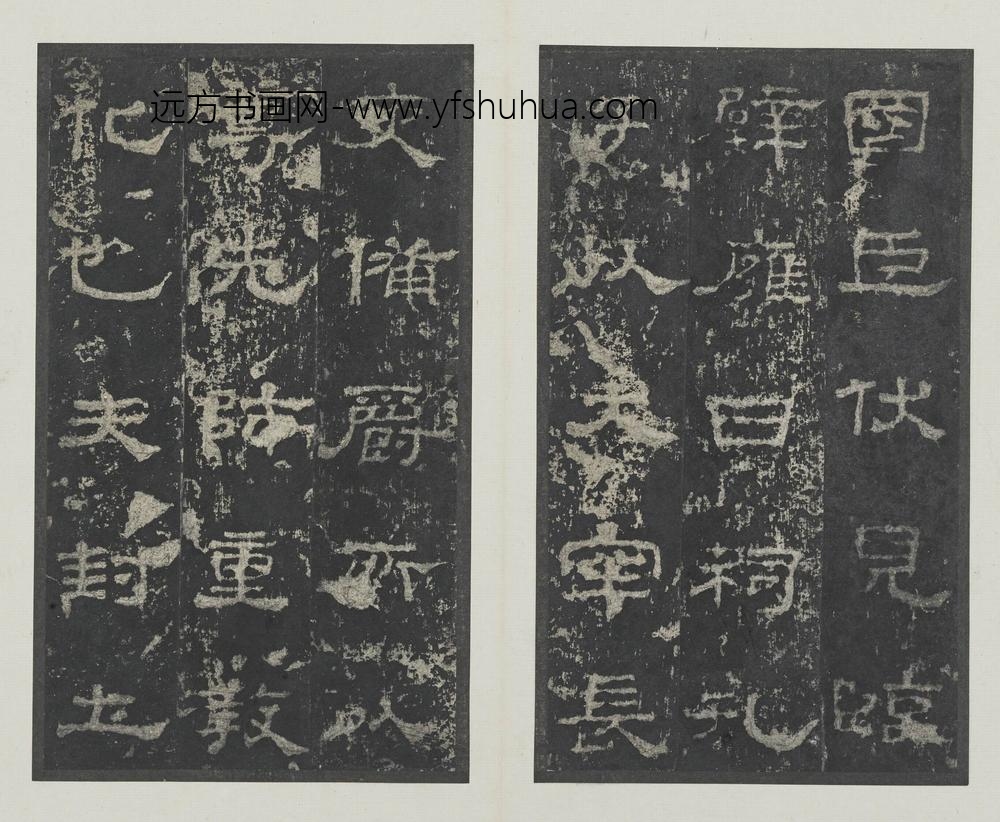 远方书画网-www.yfshuhua.com
國臣伏見臨
辟雍日祠孔
子以大宰長
吏備爵所以
尊先師重教
化也夫封土